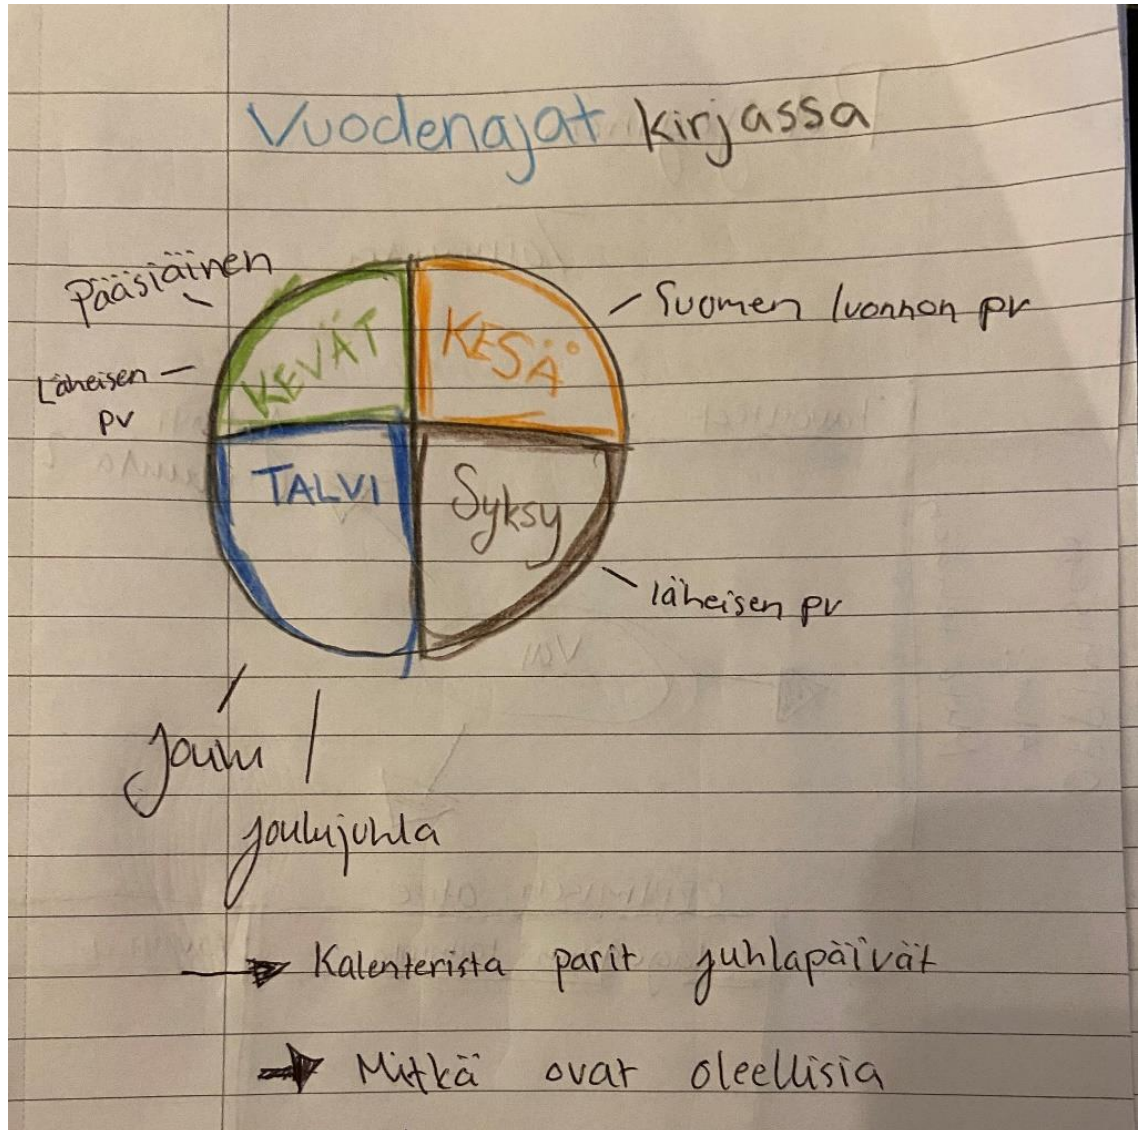 Vuodenajat kirjassa
Pääsiäinen
Suomen luonnon pv
KEVÄT
KESÄ
Läheisen
pv
TALVI
Syksy
läheisen pv
Joulu
joulujuhla
Kalenterista parit juhlapäivät
Mitkä ovat oleellisia